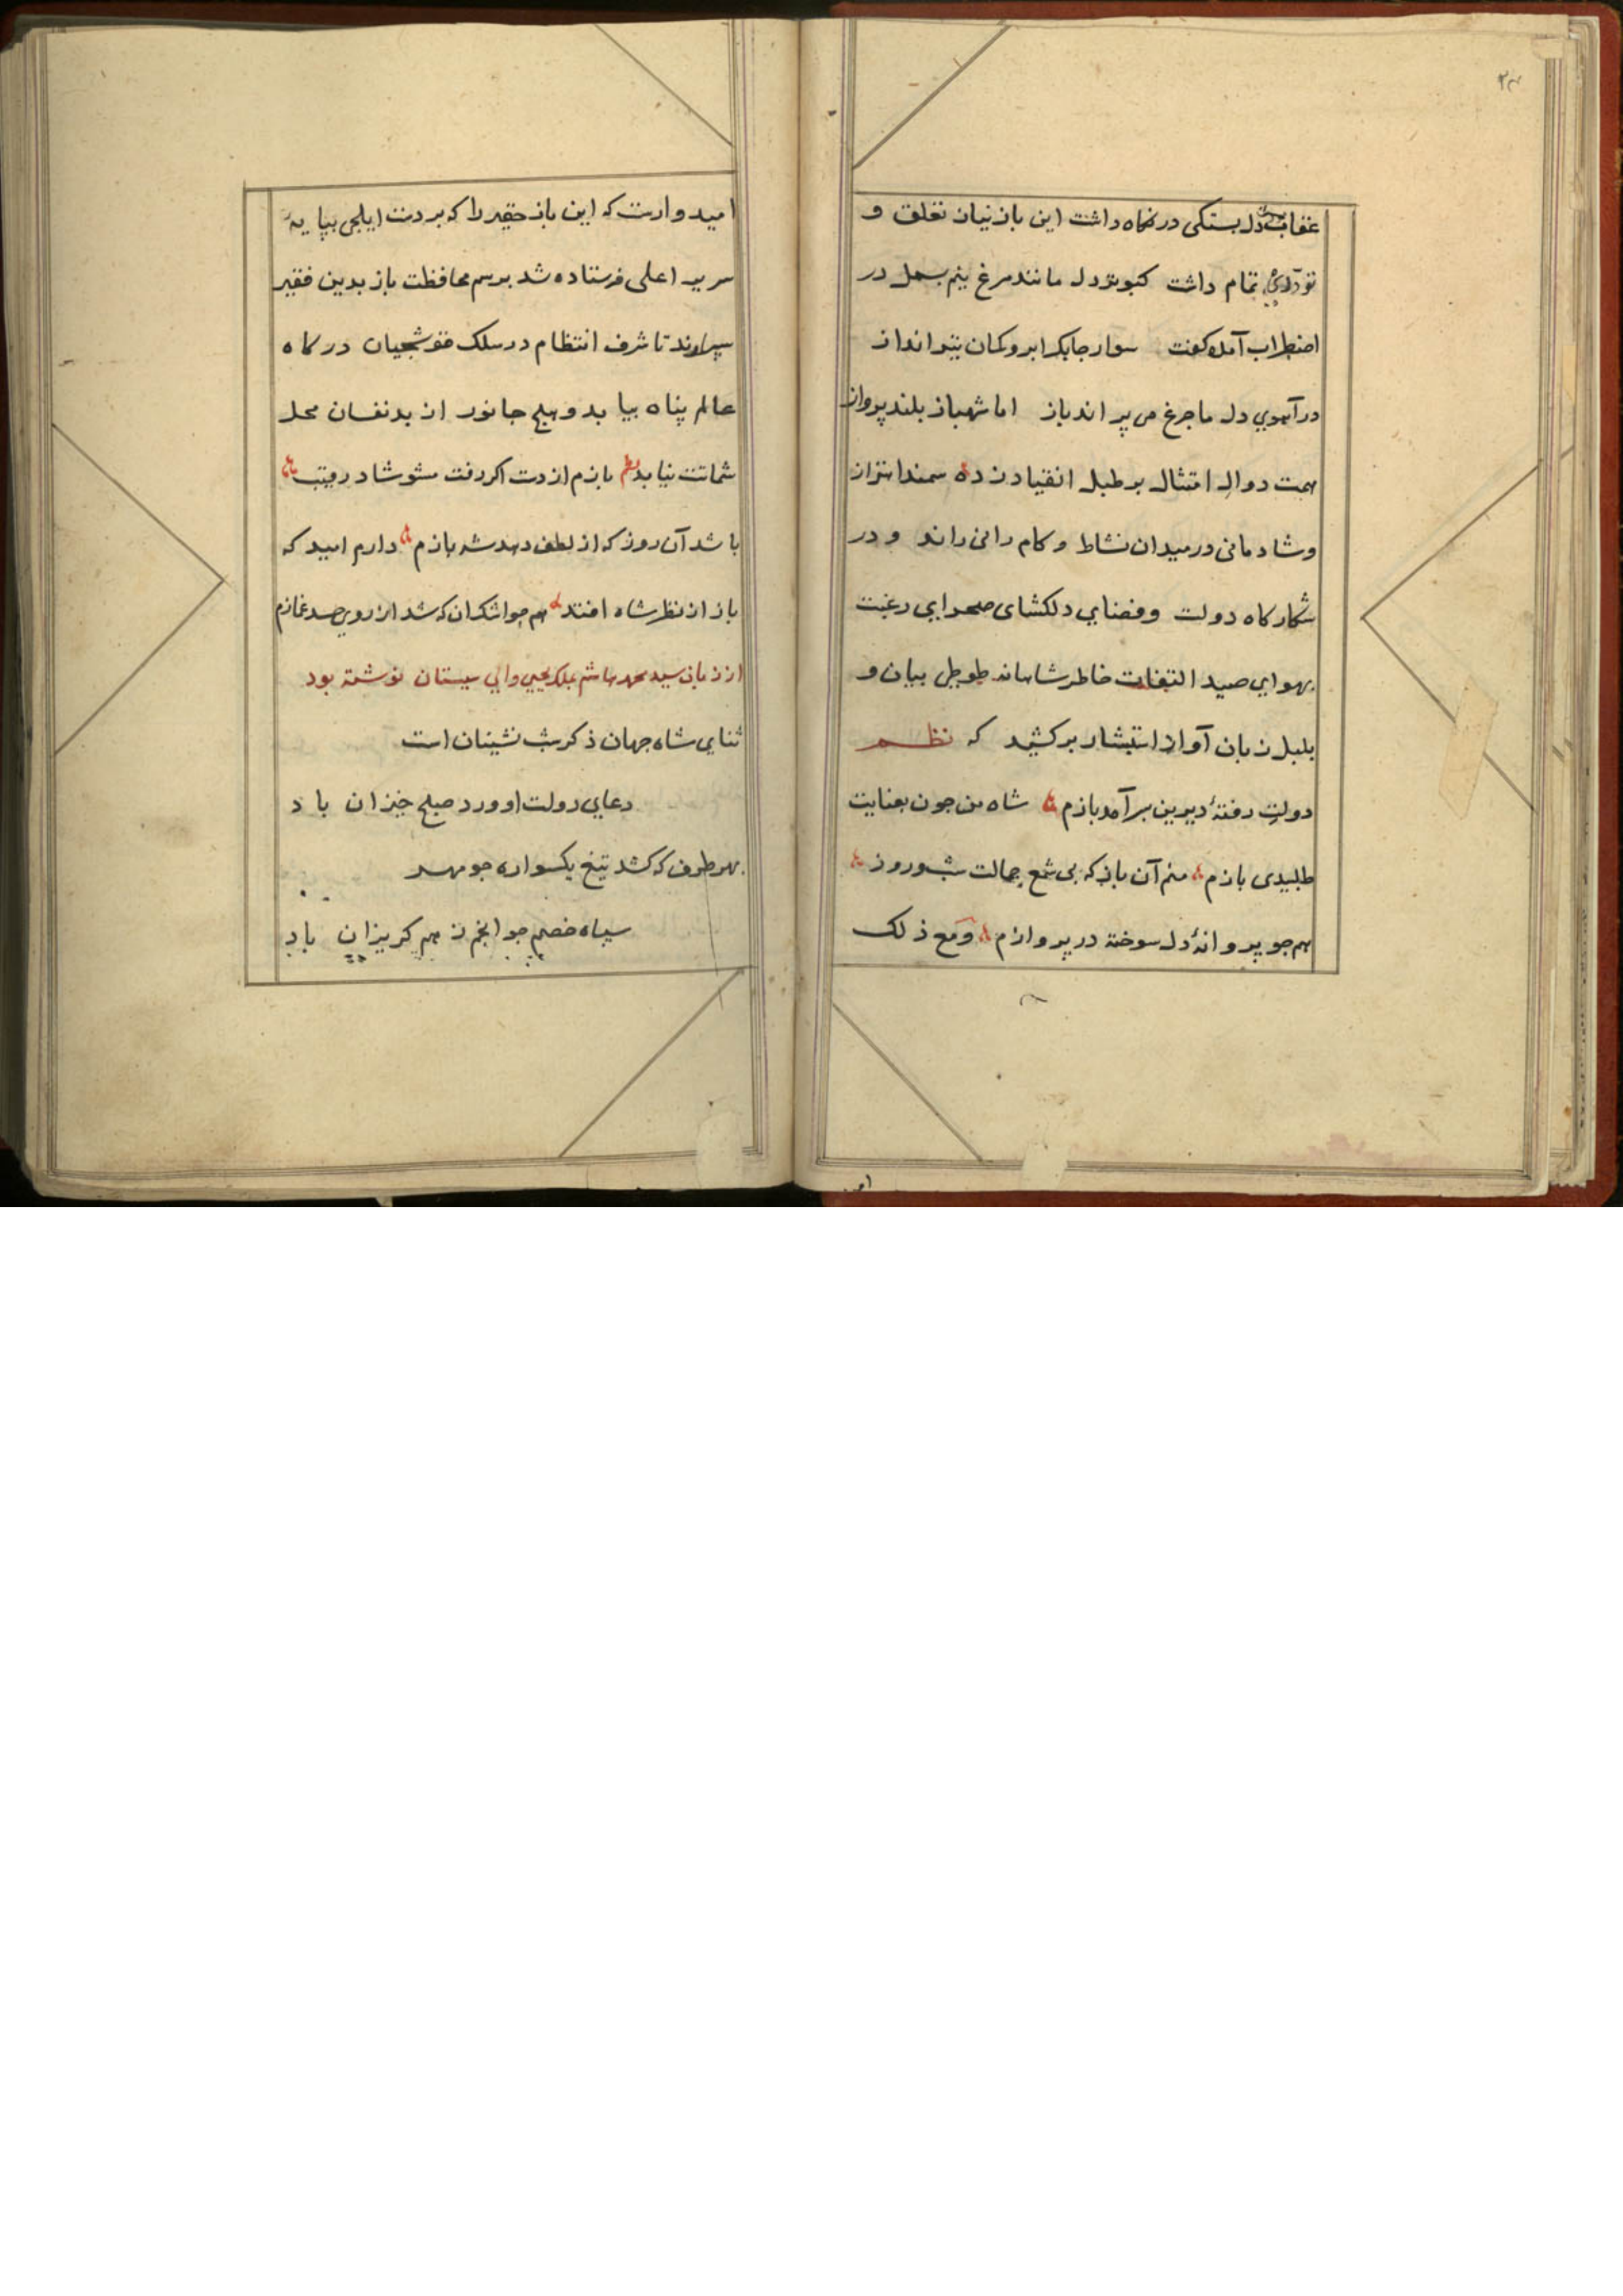 عقاب دل بستکی در نکاه داشت این باز نیاز تعلق و
تمام داشت کبوتر دل مانند مرغ نیم بسمل در
اضطراب آمده کفت سوار جابک ابرو کمان تیر انداز
در آهوی دل ما جرغ می پراند باز اما شهباز بلند پرواز
همت دوال امتثال بر طبل انقیاد زده سمند اهتزاز
و شادمانی در میدان نشاط و کام رانی راند و در
شکار کاه دولت و فضای دلکشای صحرایی رغبت
بهوای صید التفات خاطر شاهانه طوطی بیان و
بلبل زبان آواز استبشار بر کشید که نظم
دولت رفتهٔ دیرین بر آمد بازم شاه من جون بعنایت
طلبیدی بازم منم آن باز که بی شمع جمالت شب و روز
هم جو پروانهٔ دل سوخته در پروازم و مع ذلک
امیدوارست که این باز حقیر را که بر دست ایلجی بپایهٔ
سریر اعلی فرستاده شد برسم محافظت باز بدین فقیر
سپارند تا شرف انتظام در سلک قوشجیان درکاه
عالم پناه بیابد و هیج جانور از بد نفسان محل
شماتت نیابد نظم بازم از دست اکر رفت مشو شاد رقیب
باشد آن روز که از لطف دهد شه بازم دارم امید که
باز از نظر شاه افتد هم جو اشک آن که شد از روی حسد غمازم
از زبان سید محمد هاشم بملک یحیی والی سیستان نوشته بود
ثنای شاه جهان ذکر شب نشینان است
دعای دولت او ورد صبح خیزان باد
بهر طرف که کشد تیغ یکسواره جو مهر
سپاه خصم جو انجم ز هم کریزان باد